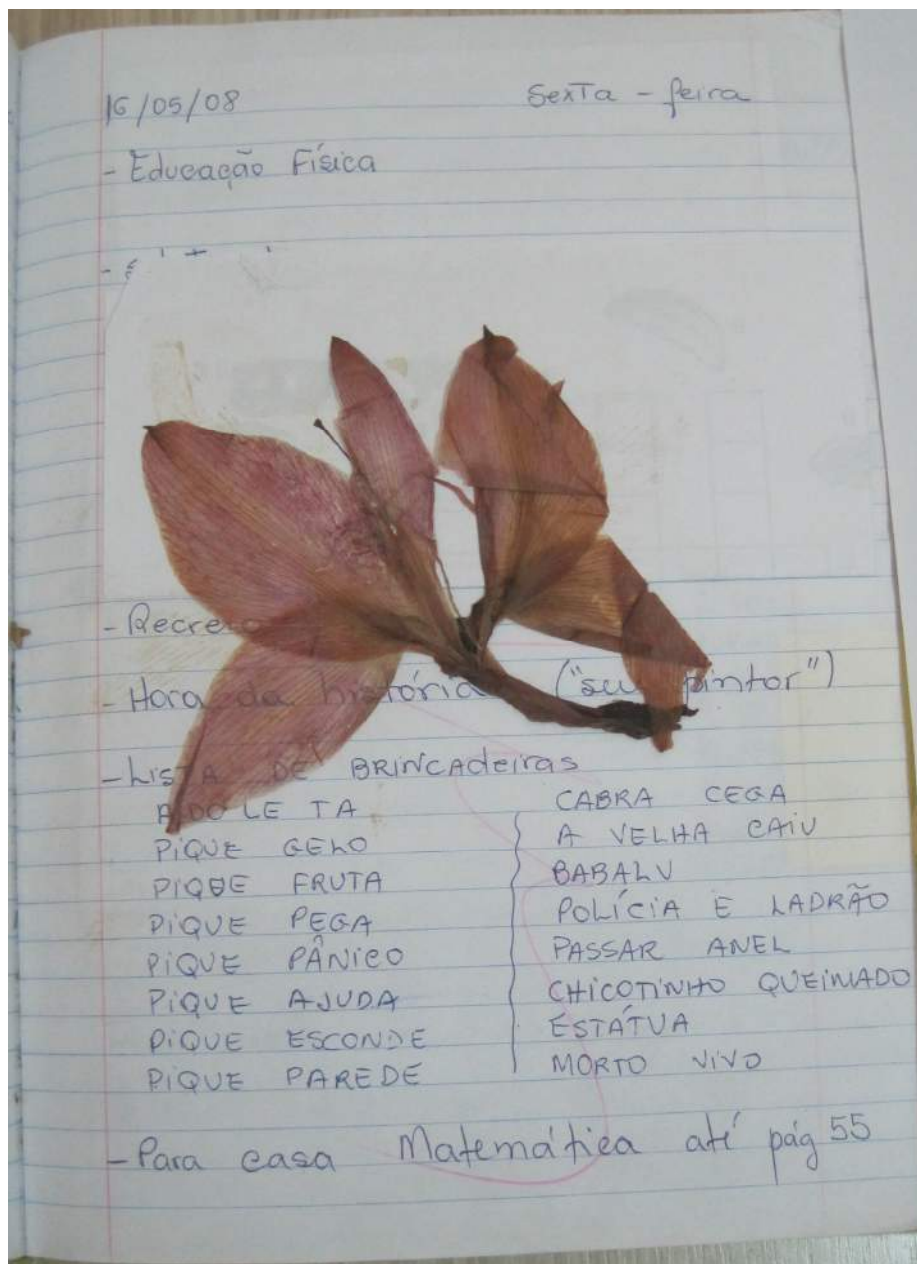 16/05/08 Sexta-feira
- Educação Física
- Recreio
- Hora da história ("seu pintor")
- LISTA DE BRINCAdeiras
ADOLETA
PIQUE GELO
PIQUE FRUTA
PIQUE PEGA
PIQUE PÂNICO
PIQUE AJUDA
PIQUE ESCONDE
PIQUE PAREDE
CABRA CEGA
A VELHA CAIU
BABALU
POLÍCIA E LADRÃO
PASSAR ANEL
CHICOTINHO QUEIMADO
ESTÁTUA
MORTO VIVO
- Para casa Matemática até pág 55